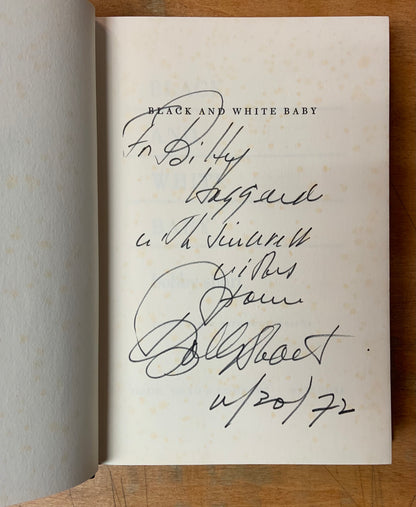 BLACK AND WHITE BABY
For Billy
Haggard
with sincerest
wishes
from
Bobby Short
11/20/72